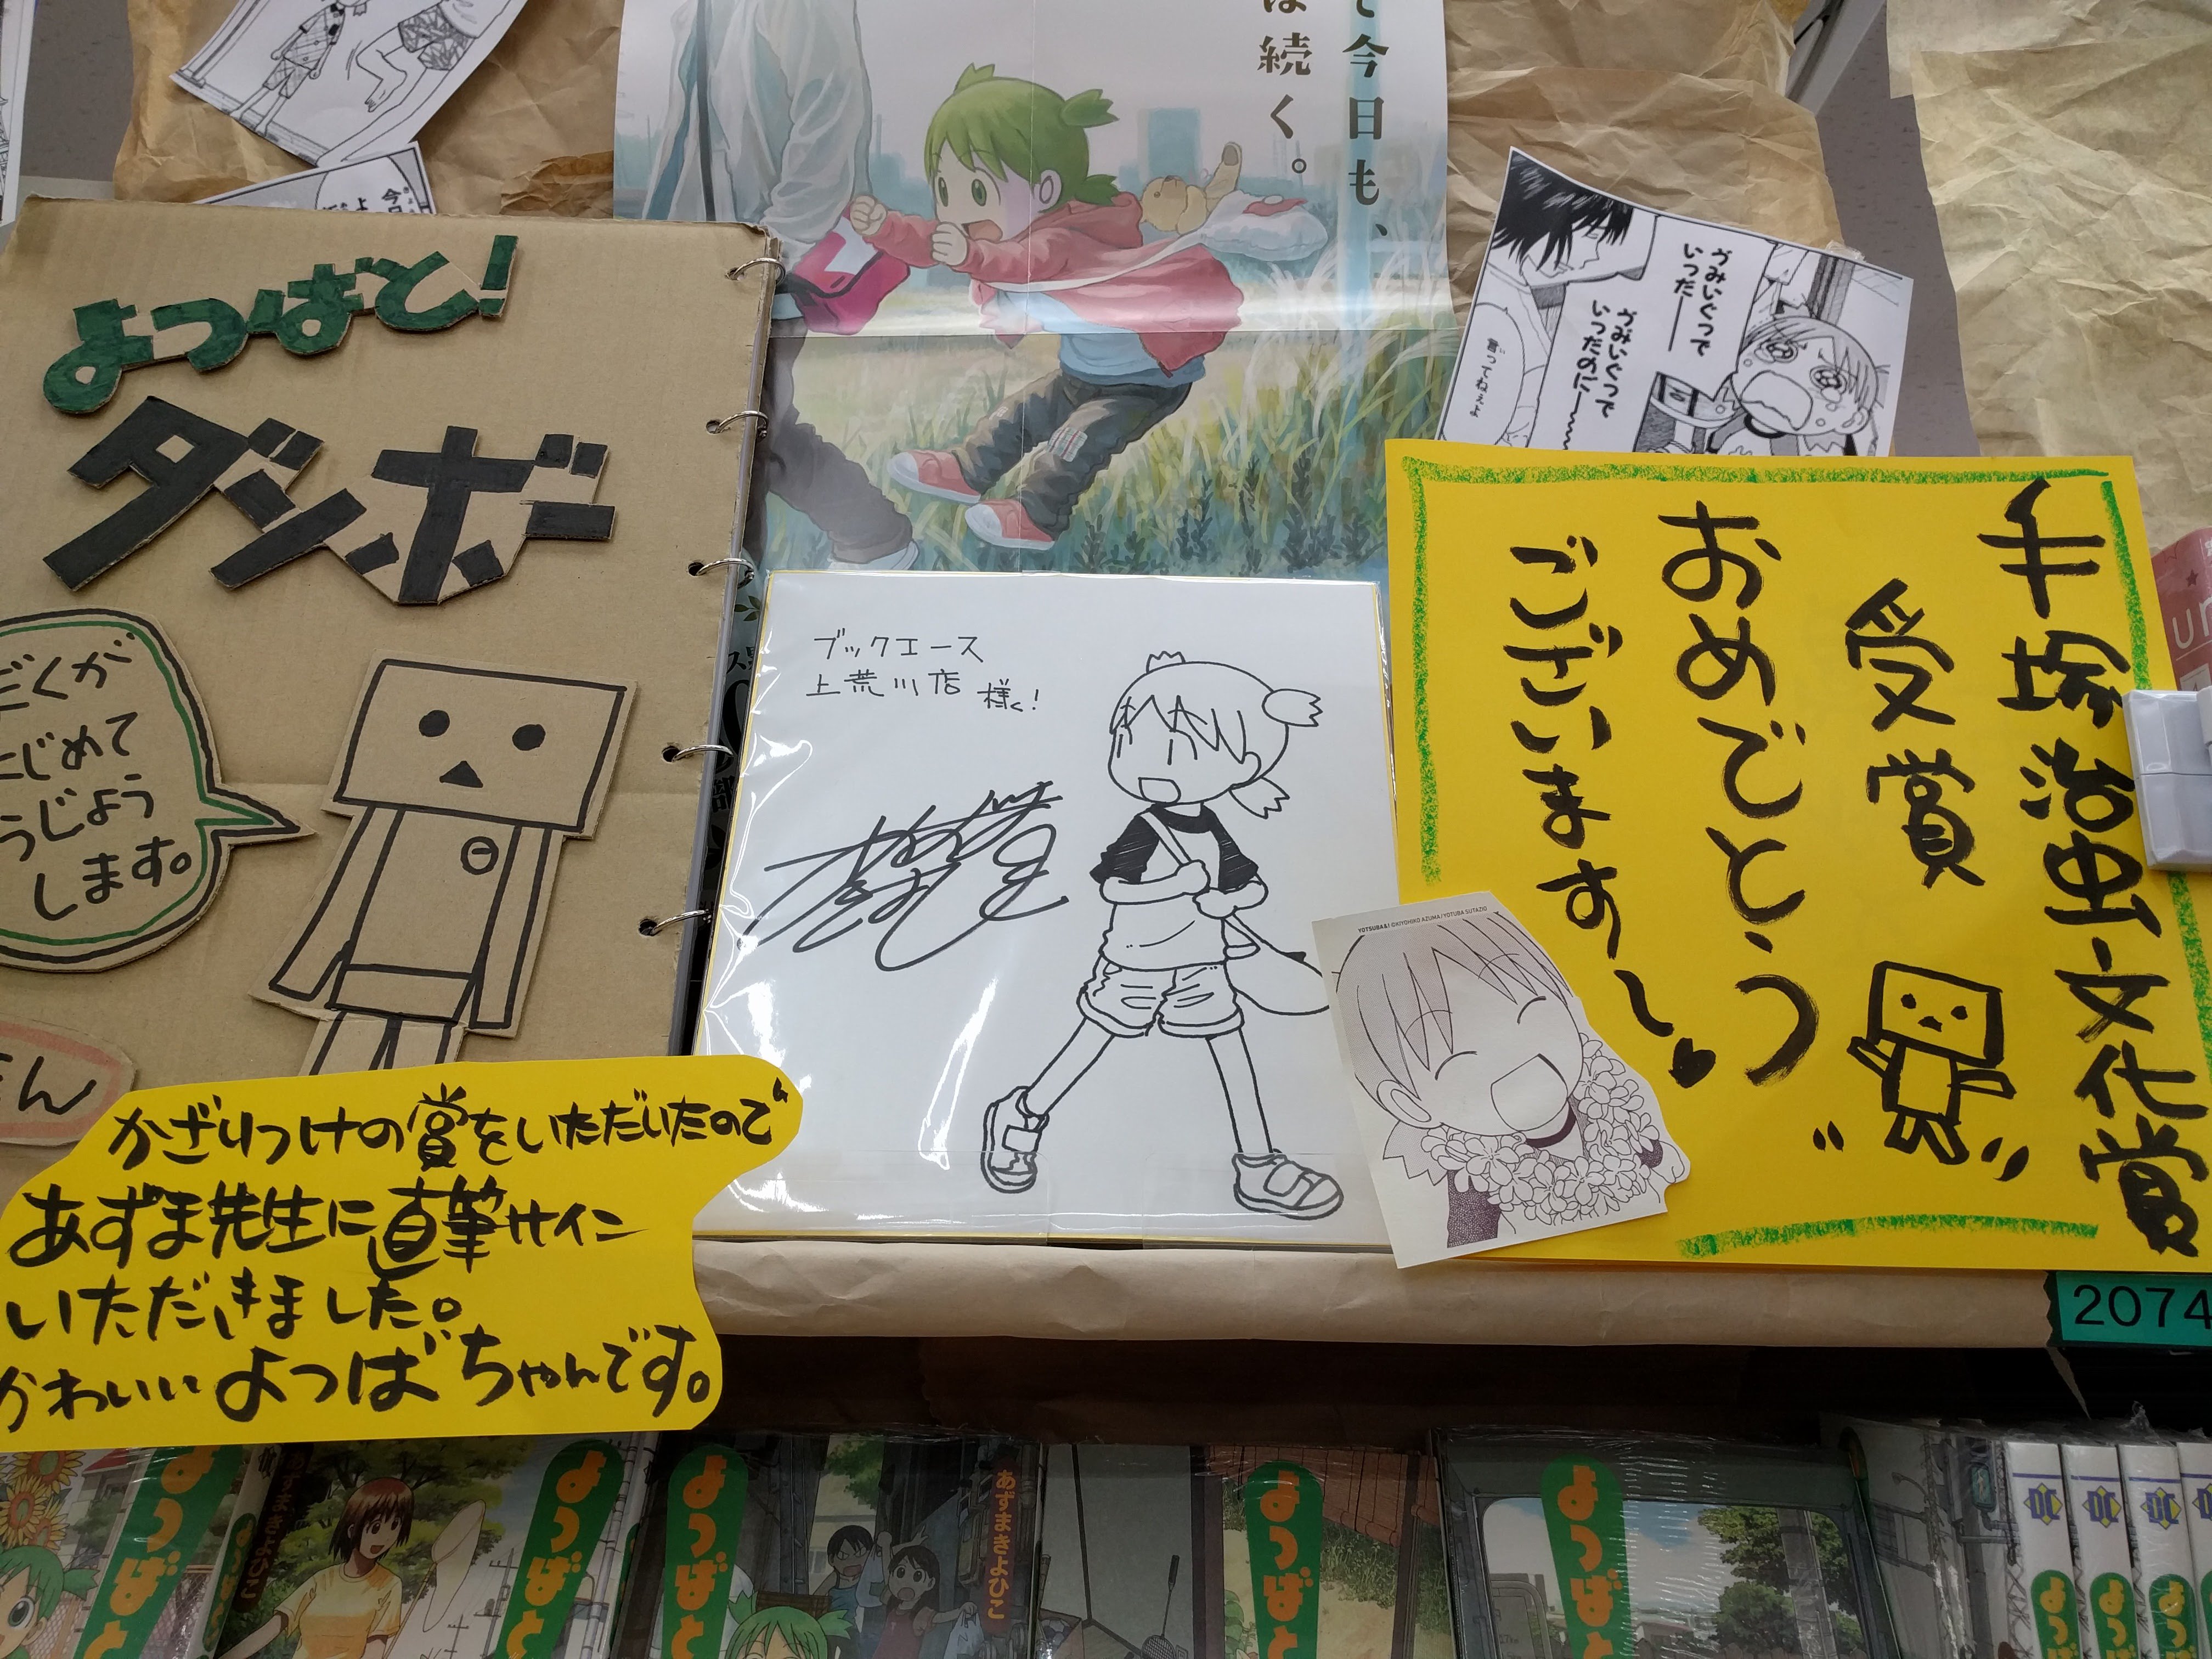 て今日も、
は続く。
よつばと!
ダンボー
はじめて
します。
ブックエース
上荒川店 様く!
うみいぐつで
いつだ――
うみいぐつで
いつだのに――
言ってねぇよ
手塚治虫文化賞
受賞
おめでとう
ございます〜♥
YOTSUBA&! ©KIYOHIKO AZUMA/YOTUBA SUTAZIO
かざりつけの賞をいただいたので
あずま先生に直筆サイン
いただきました。
かわいいよつばちゃんです。
2074
よつばと
あずまきよひこ
よつばと
よつばと
あずまきよひこ
よつばと
よつばと
DC
DC
DC
よつば
よつば
よつば